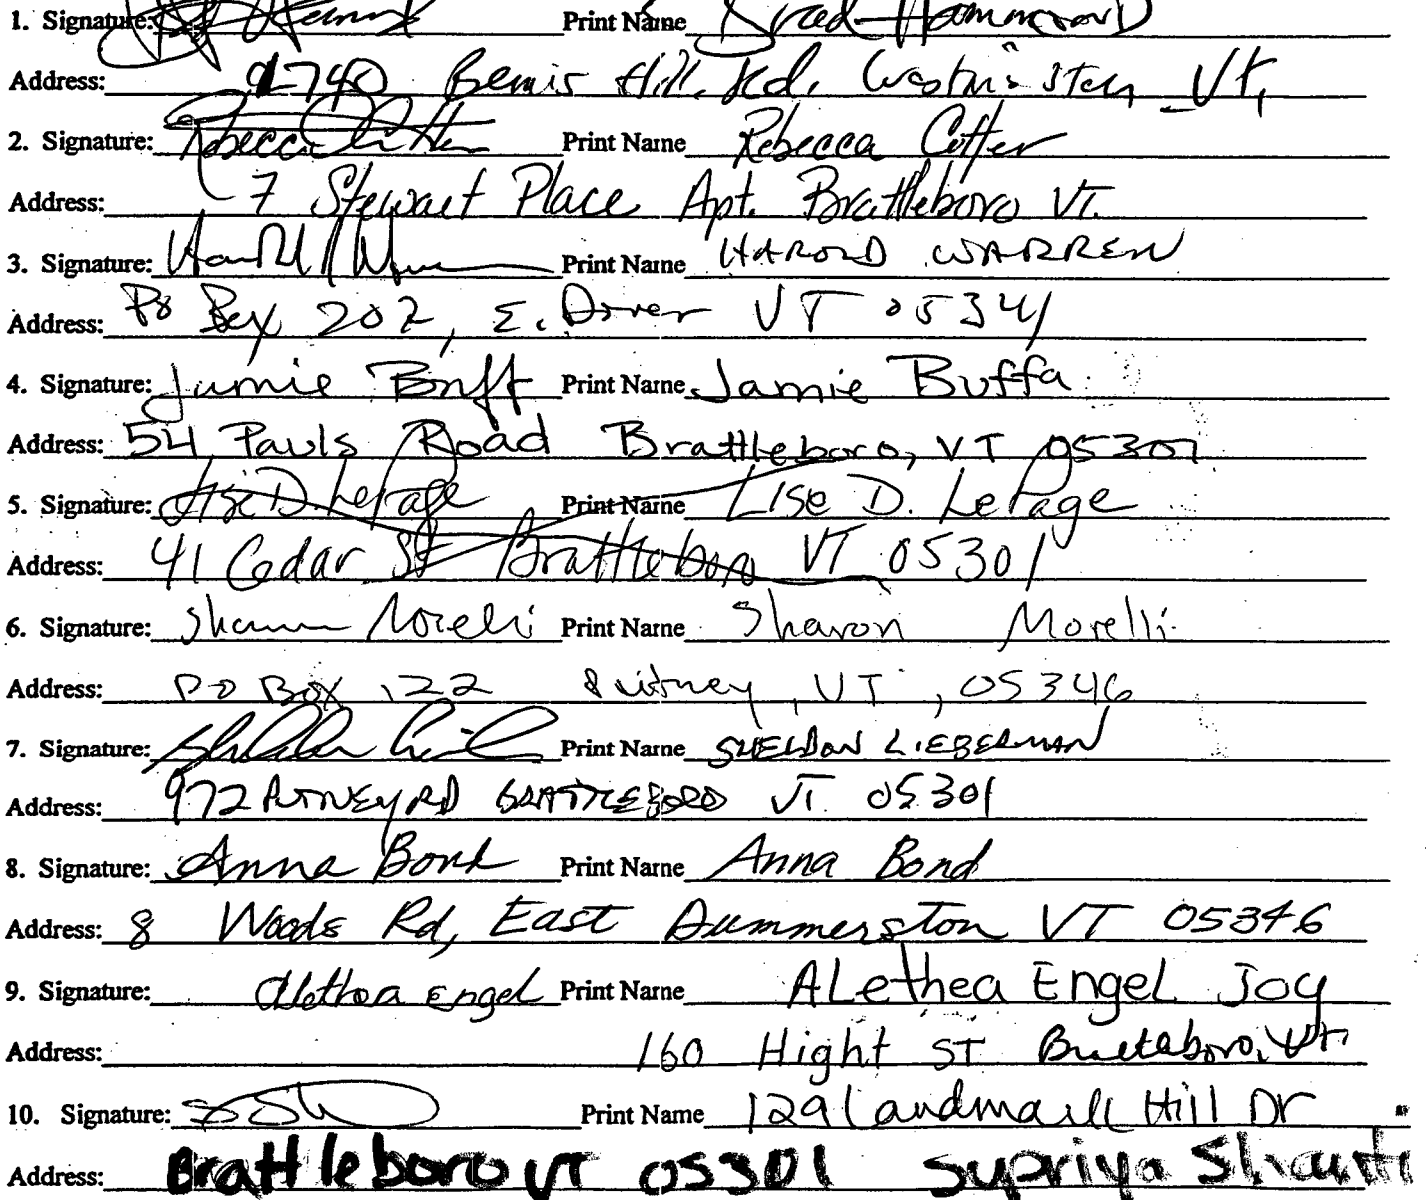 1. Signature: Print Name Brad Hammond
Address: Bemis Hill Rd. Westminster, Vt,
2. Signature: Rebecca Cotter Print Name Rebecca Cotter
Address: 7 Stewart Place Apt. Brattleboro VT.
3. Signature: Harold Print Name HAROLD WARREN
Address: Po Box 202, E. Dover VT 05341
4. Signature: Jamie Buff Print Name Jamie Buffa
Address: 54 Pauls Road Brattleboro, VT 05301
5. Signature: Lise D. LePage Print Name Lise D. LePage
Address: 41 Cedar St Brattleboro VT 05301
6. Signature: Sharon Morelli Print Name Sharon Morelli
Address: PO BOX 122 Putney, VT, 05346
7. Signature: Print Name SHELDON LIEBERMAN
Address: 972 PUTNEY RD BRATTLEBORO VT 05301
8. Signature: Anna Bond Print Name Anna Bond
Address: 8 Woods Rd, East Dummerston VT 05346
9. Signature: Alethea Engel Print Name ALethea EngeL Joy
Address: 160 Hight ST Brattleboro, Vt.
10. Signature: Print Name 129 Landmark Hill Dr
Address: Brattleboro VT 05301 Supriya Shanti